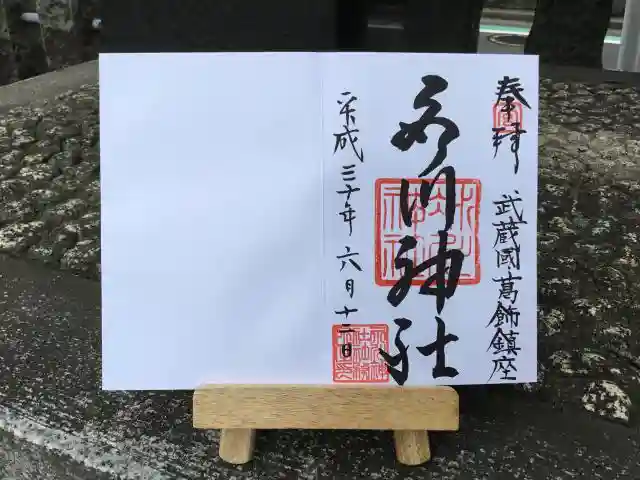 奉拝
武蔵國葛飾鎮座
氷川神社
平成三十年六月十二日